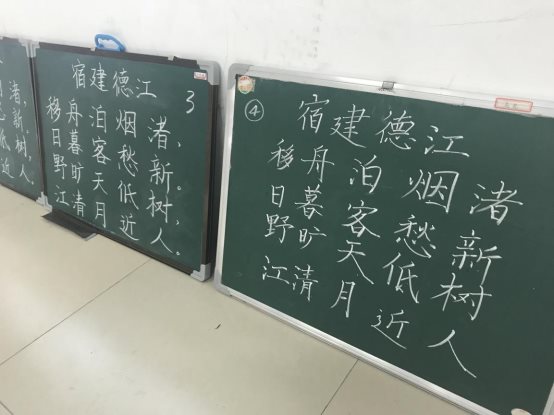 渚，
新。
低树，
近人。
宿建德江
3
移舟泊烟渚，
日暮客愁新。
野旷天低树，
江清月近人。
④
宿建德江
移舟泊烟渚
日暮客愁新
野旷天低树
江清月近人